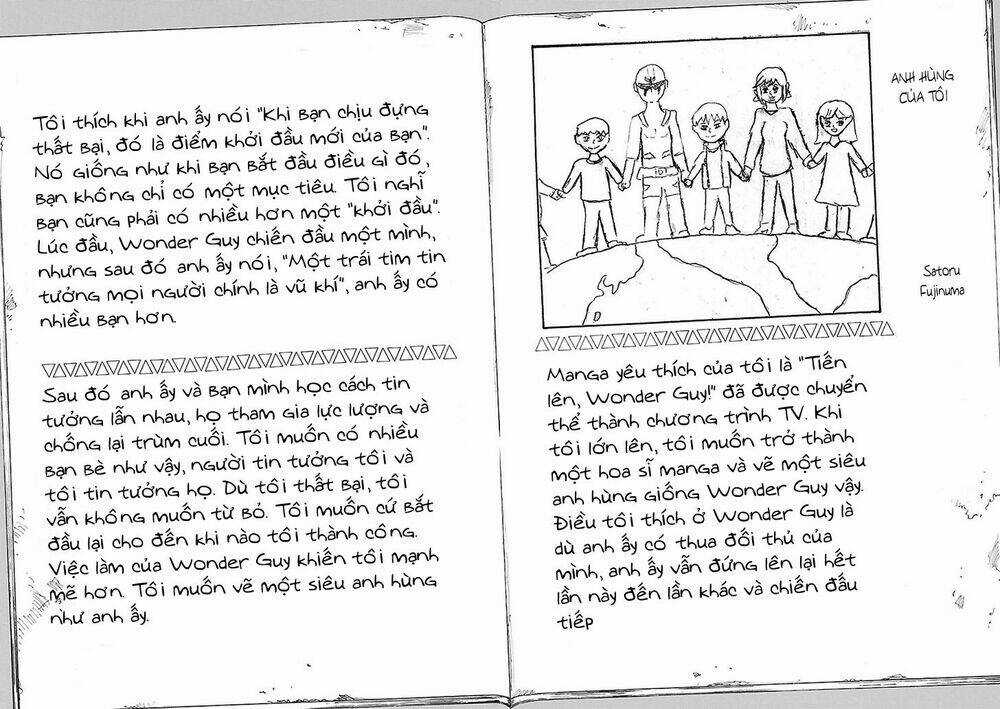 ANH HÙNG
CỦA TÔI
Satoru
Fujinuma
Manga yêu thích của tôi là "Tiến
lên, Wonder Guy!" đã được chuyển
thể thành chương trình TV. Khi
tôi lớn lên, tôi muốn trở thành
một hoa sĩ manga và vẽ một siêu
anh hùng giống Wonder Guy vậy.
Điều tôi thích ở Wonder Guy là
dù anh ấy có thua đối thủ của
mình, anh ấy vẫn đứng lên lại hết
lần này đến lần khác và chiến đấu
tiếp
Tôi thích khi anh ấy nói "Khi bạn chịu đựng
thất bại, đó là điểm khởi đầu mới của bạn".
Nó giống như khi bạn bắt đầu điều gì đó,
bạn không chỉ có một mục tiêu. Tôi nghĩ
bạn cũng phải có nhiều hơn một "khởi đầu".
Lúc đầu, Wonder Guy chiến đấu một mình,
nhưng sau đó anh ấy nói, "Một trái tim tin
tưởng mọi người chính là vũ khí", anh ấy có
nhiều bạn hơn.
Sau đó anh ấy và bạn mình học cách tin
tưởng lẫn nhau, họ tham gia lực lượng và
chống lại trùm cuối. Tôi muốn có nhiều
bạn bè như vậy, người tin tưởng tôi và
tôi tin tưởng họ. Dù tôi thất bại, tôi
vẫn không muốn từ bỏ. Tôi muốn cứ bắt
đầu lại cho đến khi nào tôi thành công.
Việc làm của Wonder Guy khiến tôi mạnh
mẽ hơn. Tôi muốn vẽ một siêu anh hùng
như anh ấy.